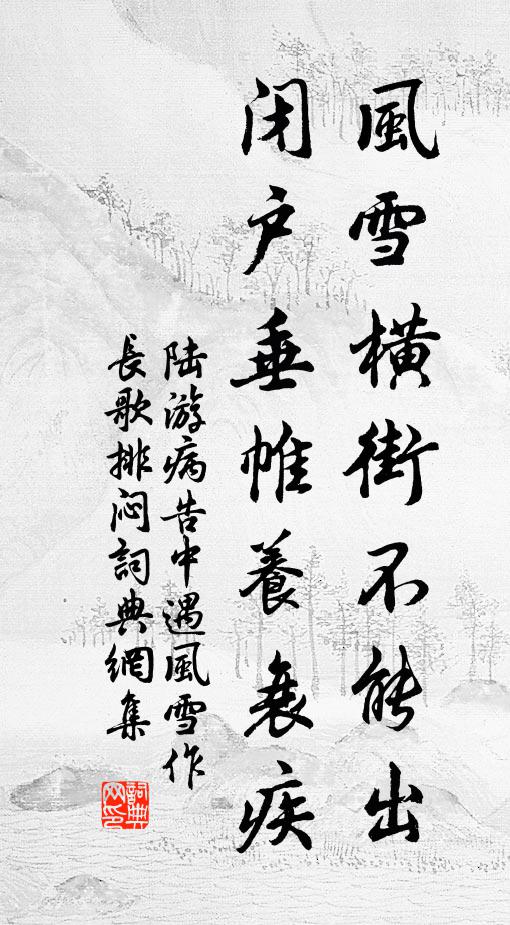 風雪橫街不能出
闭户垂帷養衰疾
陆游病告中遇風雪作
長歌排闷詞典網集
詞典网印